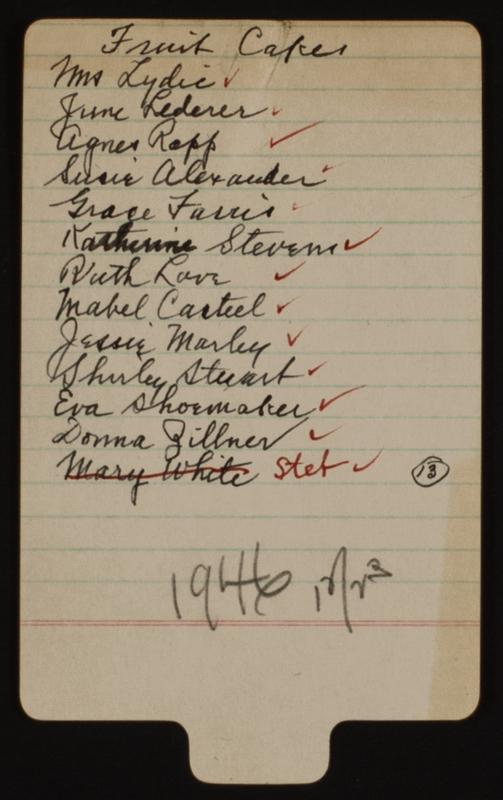 Fruit Cakes
Mrs Lydic ✓
June Lederer ✓
Agnes Rapp ✓
Susie Alexander ✓
Grace Farris ✓
Katherine Stevens ✓
Ruth Love ✓
Mabel Casteel ✓
Jessie Marley ✓
Shirley Stewart ✓
Eva Shoemaker ✓
Donna Zillner ✓
Mary White stet ✓ 13
1946 12/23